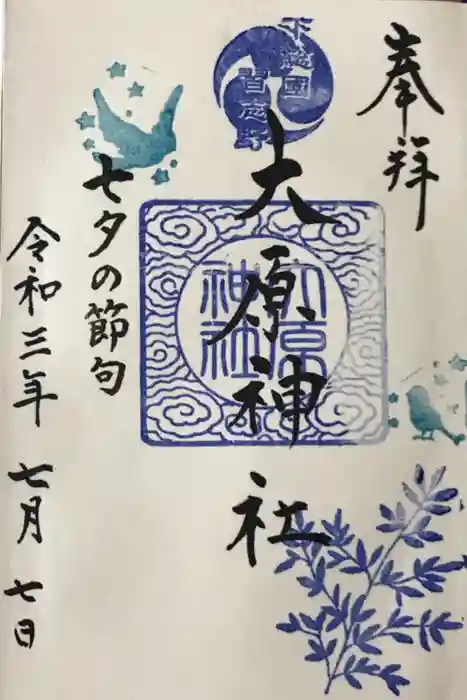 奉拝
下總國
習志野
大原神社
大原
神社
七夕の節句
令和三年 七月 七日